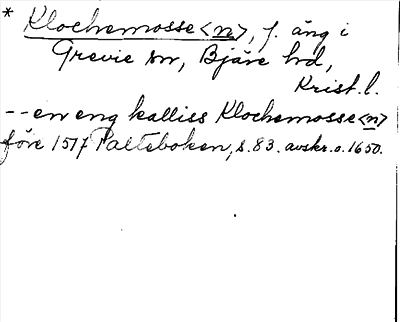 * Klochemosse <n>, f. äng i
Grevie sn, Bjäre hd,
Krist. l.
-- en eng kalliss Klochemosse <n>
före 1517 Palteboken, s. 83. avskr. o. 1650.